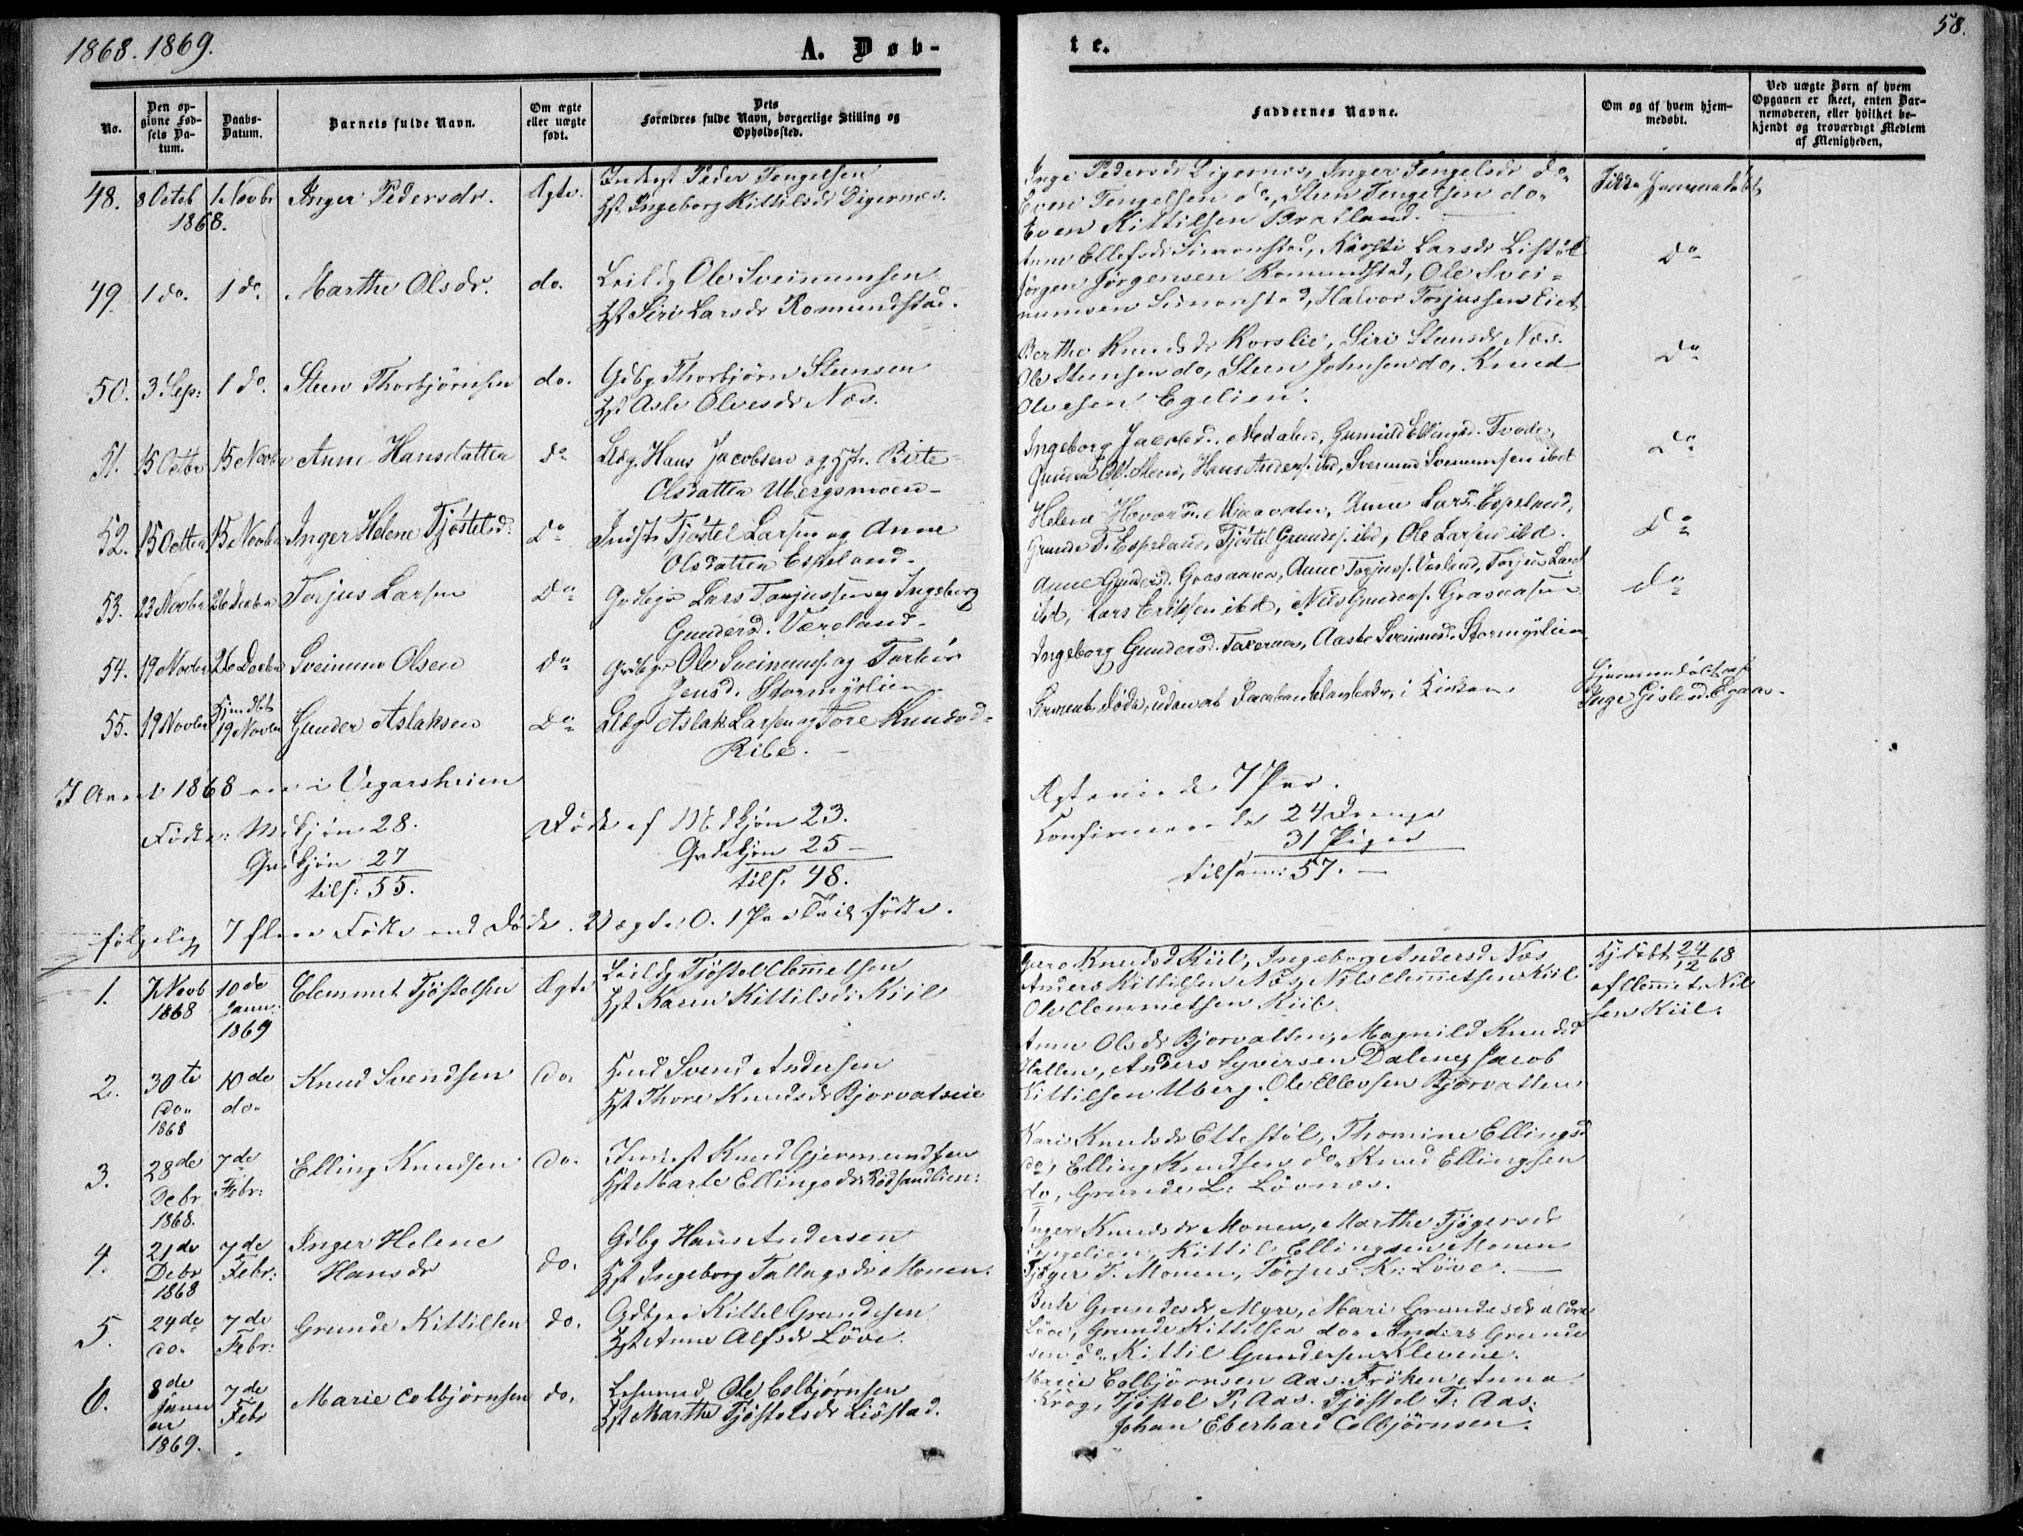 1868. 1869.
A. Døb-
te.
58.
No.
Den op-
givne Fød-
sels Da-
tum.
Daabs-
Datum.
Barnets fulde Navn.
Om ægte
eller uægte
født.
Dets
Forældres fulde Navn, borgerlige Stilling og
Opholdssted.
Faddernes Navne.
Om og af hvem hjem-
medøbt.
Ved uægte Børn af hvem
Opgaven er skeet, enten Bar-
nemoderen, eller hvilket be-
kjendt og troværdigt Medlem
af Menigheden.
48. 8 Octob 1 Novbr Inger Pedersdr. Ægte. Peder Tengelsen
1868. Hst Ingeborg Kittilsdr Digernes.
Inge Pedersdr Digernes, Inger Tengelsdr do.
Even Tengelsen do, Steen Tengelsen do.
Even Kittilsen Braland.
Ikke Hjemmedøbt
49. 1 do. 1 do. Marthe Olsdr. do. Leildg Ole Sveinumsen
Hst Siri Larsdr Romundstad.
Anne Ellefsdr Simonstad, Kirsti Larsdr Listøl
Jørgen Jørgensen Romundstad, Ole Svei-
numsen Simonstad, Halvor Torjussen Liet
Do
50. 3 Sep: 1 do. Steen Thorbjørnsen do. Gdbg Thorbjørn Steensen
Hst Asle Olvesdr Næs.
Berthe Knudsdr Korslie, Siri Steensdr Næs.
Ole Steensen do, Steen Johnsen do, Knud
Olvesen Egelien.
Do
51. 15 Octbr 15 Novbr Anne Hansdatter Do Ldg. Hans Jacobsen og Hst. Birte
Olsdatter Ubergsmoen
Ingeborg Jacobsd. Medalen, Gunild Ellingsd. Tvede,
Gunder Ols. Moen, Hans Anders. ibd, Sveinund Sveinumsen ibd
Do
52. 15 Octbr 15 Novbr Inger Helene Tjøstelsd. Do Indst. Tjøstel Larsen og Anne
Olsdatter Espeland.
Helene Havorsd. Mæavaten, Anne Larsd. Espeland,
Grunde T. Espeland, Tjøstel Grundes. ibd, Ole Larsen ibd.
Do
53. 23 Novbr 26 Decbr Torjus Larsen Do Grdbgr Lars Torjussen og Ingeborg
Gundersd. Væreland.
Anne Gundersd. Graasaasen, Anne Torjus. Væreland, Torjus Lars.
ibd, Lars Eriksen ibd, Nils Gunders. Graasaasen
Do
54. 19 Novbr 26 Decbr Sveinum Olsen Do Grdbgr Ole Sveinums. og Torbør
Jensd. Stormyrlien.
Ingeborg Gundersd. Taxernes, Aaste Sveinumsd. Stormyrlien
55. 19 Novbr Hjmdbt 19 Novbr Gunder Aslaksen Do Ldbg Aslak Larsen og Tore Knudsd.
Ribe.
Barnet døde, uden at Daaben blev bekr. i Kirken.
Hjemmedøbt af
Inge Gislesd. Egaas.
I Aaret 1868 ere i Vegarsheien
Fødte: Mkjøn 28.
Qvdkjøn 27
tils: 55.
Døde af Mdkjøn 23.
Qvdekjøn 25
tils. 48.
følgelig 7 flere Fødte end Døde. Uægte: 0. 1 Par Tvil. fødte.
Ægteviede 7 Par.
Confirmerede 24 Drenge
31 Piger
tilsam: 57.
1. 7 Novb 1868 10de Janu: 1869 Clemmet Tjøstelsen Ægte Leildg Tjøstel Clemmetsen
Hst Karen Kittilsdr Kiil
Guro Knudsd Kiil, Ingeborg Andersd Næs
Anders Kittilsen Næs, Nils Clemmetsen Kiil
Ole Clemmetsen Kiil.
Hjdøbt 24/12 68
af Clemet Nil
sen Kiil.
2. 30te do. 1868 10de do. Knud Svendsen do. Hmd Svend Andersen
Hst Thore Knudsdr Bjorvatseie
Anne Olsdr Bjorvatten, Magnild Knudsd
Hallen, Anders Syversen Dalene, Jacob
Kittilsen Uberg, Ole Ellevsen Bjorvatten
3. 28de Debr 1868. 7de Febr: Elling Knudsen do. Indest Knud Gjermundsen
Hst Marte Ellingsdr Rødsandlien:
Kari Knudsdr Ettestøl, Thomine Ellingsd
do, Elling Knudsen do. Knud Ellingsen
do, Grunde L. Løvnæs.
4. 21de Debr 1868 7de Febr: Inger Helene
Hansdr do. Gdbg Hans Andersen
Hst Ingeborg Tallagsdr Monen.
Inger Knudsdr Monen, Marthe Tjøgersdr
Engelien, Kittil Ellingsen Monen
Tjøger T. Monen, Torjus K. Løve.
5. 24de do. 7de Febr: Grunde Kittilsen do. Gdbgr Kittel Grundesen
Hst Anne Alfsdr Løve.
Berte Grundesdr Myre, Mari Grundesdr
Løve, Grunde Kittilsen do. Anders Grunde
sen do. Kittil Gundersen Klevene.
6. 8de Janu ar 1869. 7de Febr Marie Colbjørnsen do. Lensmd Ole Colbjørnsen
Hst Marthe Tjøstelsdr Liøstad.
Marie Colbjørnsen Aas. Frøken Anna
Krog, Tjøstol P. Aas. Tjøstol T. Aas.
Johan Eberhard Colbjørnsen.